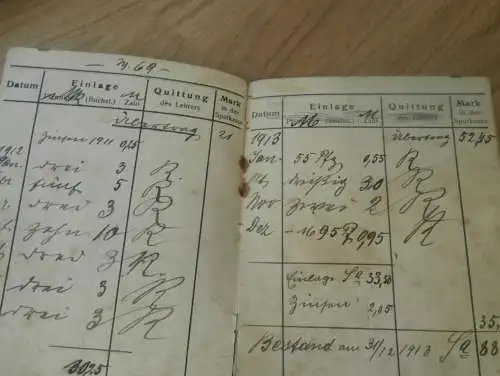 M. 69.
Datum Einlage Quittung Mark
M (Buchst.) Zahl des Lehrers in der Sparkasse
Übertrag 21
Zinsen 1911 0,25
1912
Jan. drei 3 R.
fünf 5 R.
drei 3 R.
zehn 10 R
drei 3 R.
drei 3 R
drei 3 R
30,25
Datum Einlage Quittung Mark
M (Buchst.) M Zahl des Lehrers in der Sparkasse
1913 Übertrag 52,45
Jan 55 Pfg 0,55 R
dreißig 30 R
Nov zwei 2 R
Dez 95 0,95 R
Einlage Sa 33,50
Zinsen
35,
Bestand am 31/12 1913 Sa 88